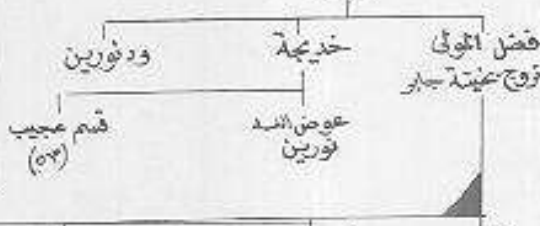 فضل المولى
زوج عينة جابر
خديجة
ود نورين
عوض السيد
نورين
قسم عجيب
(٥٣)